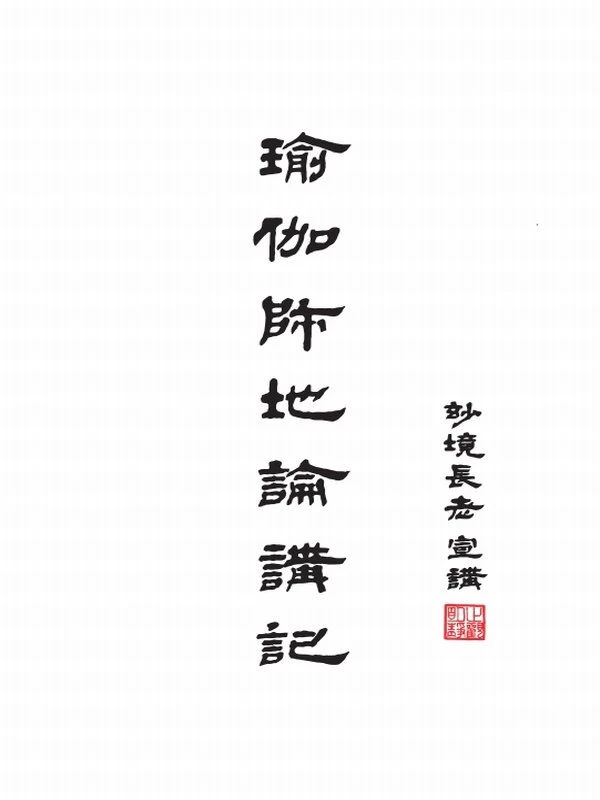 瑜伽師地論講記
玅境長老宣講